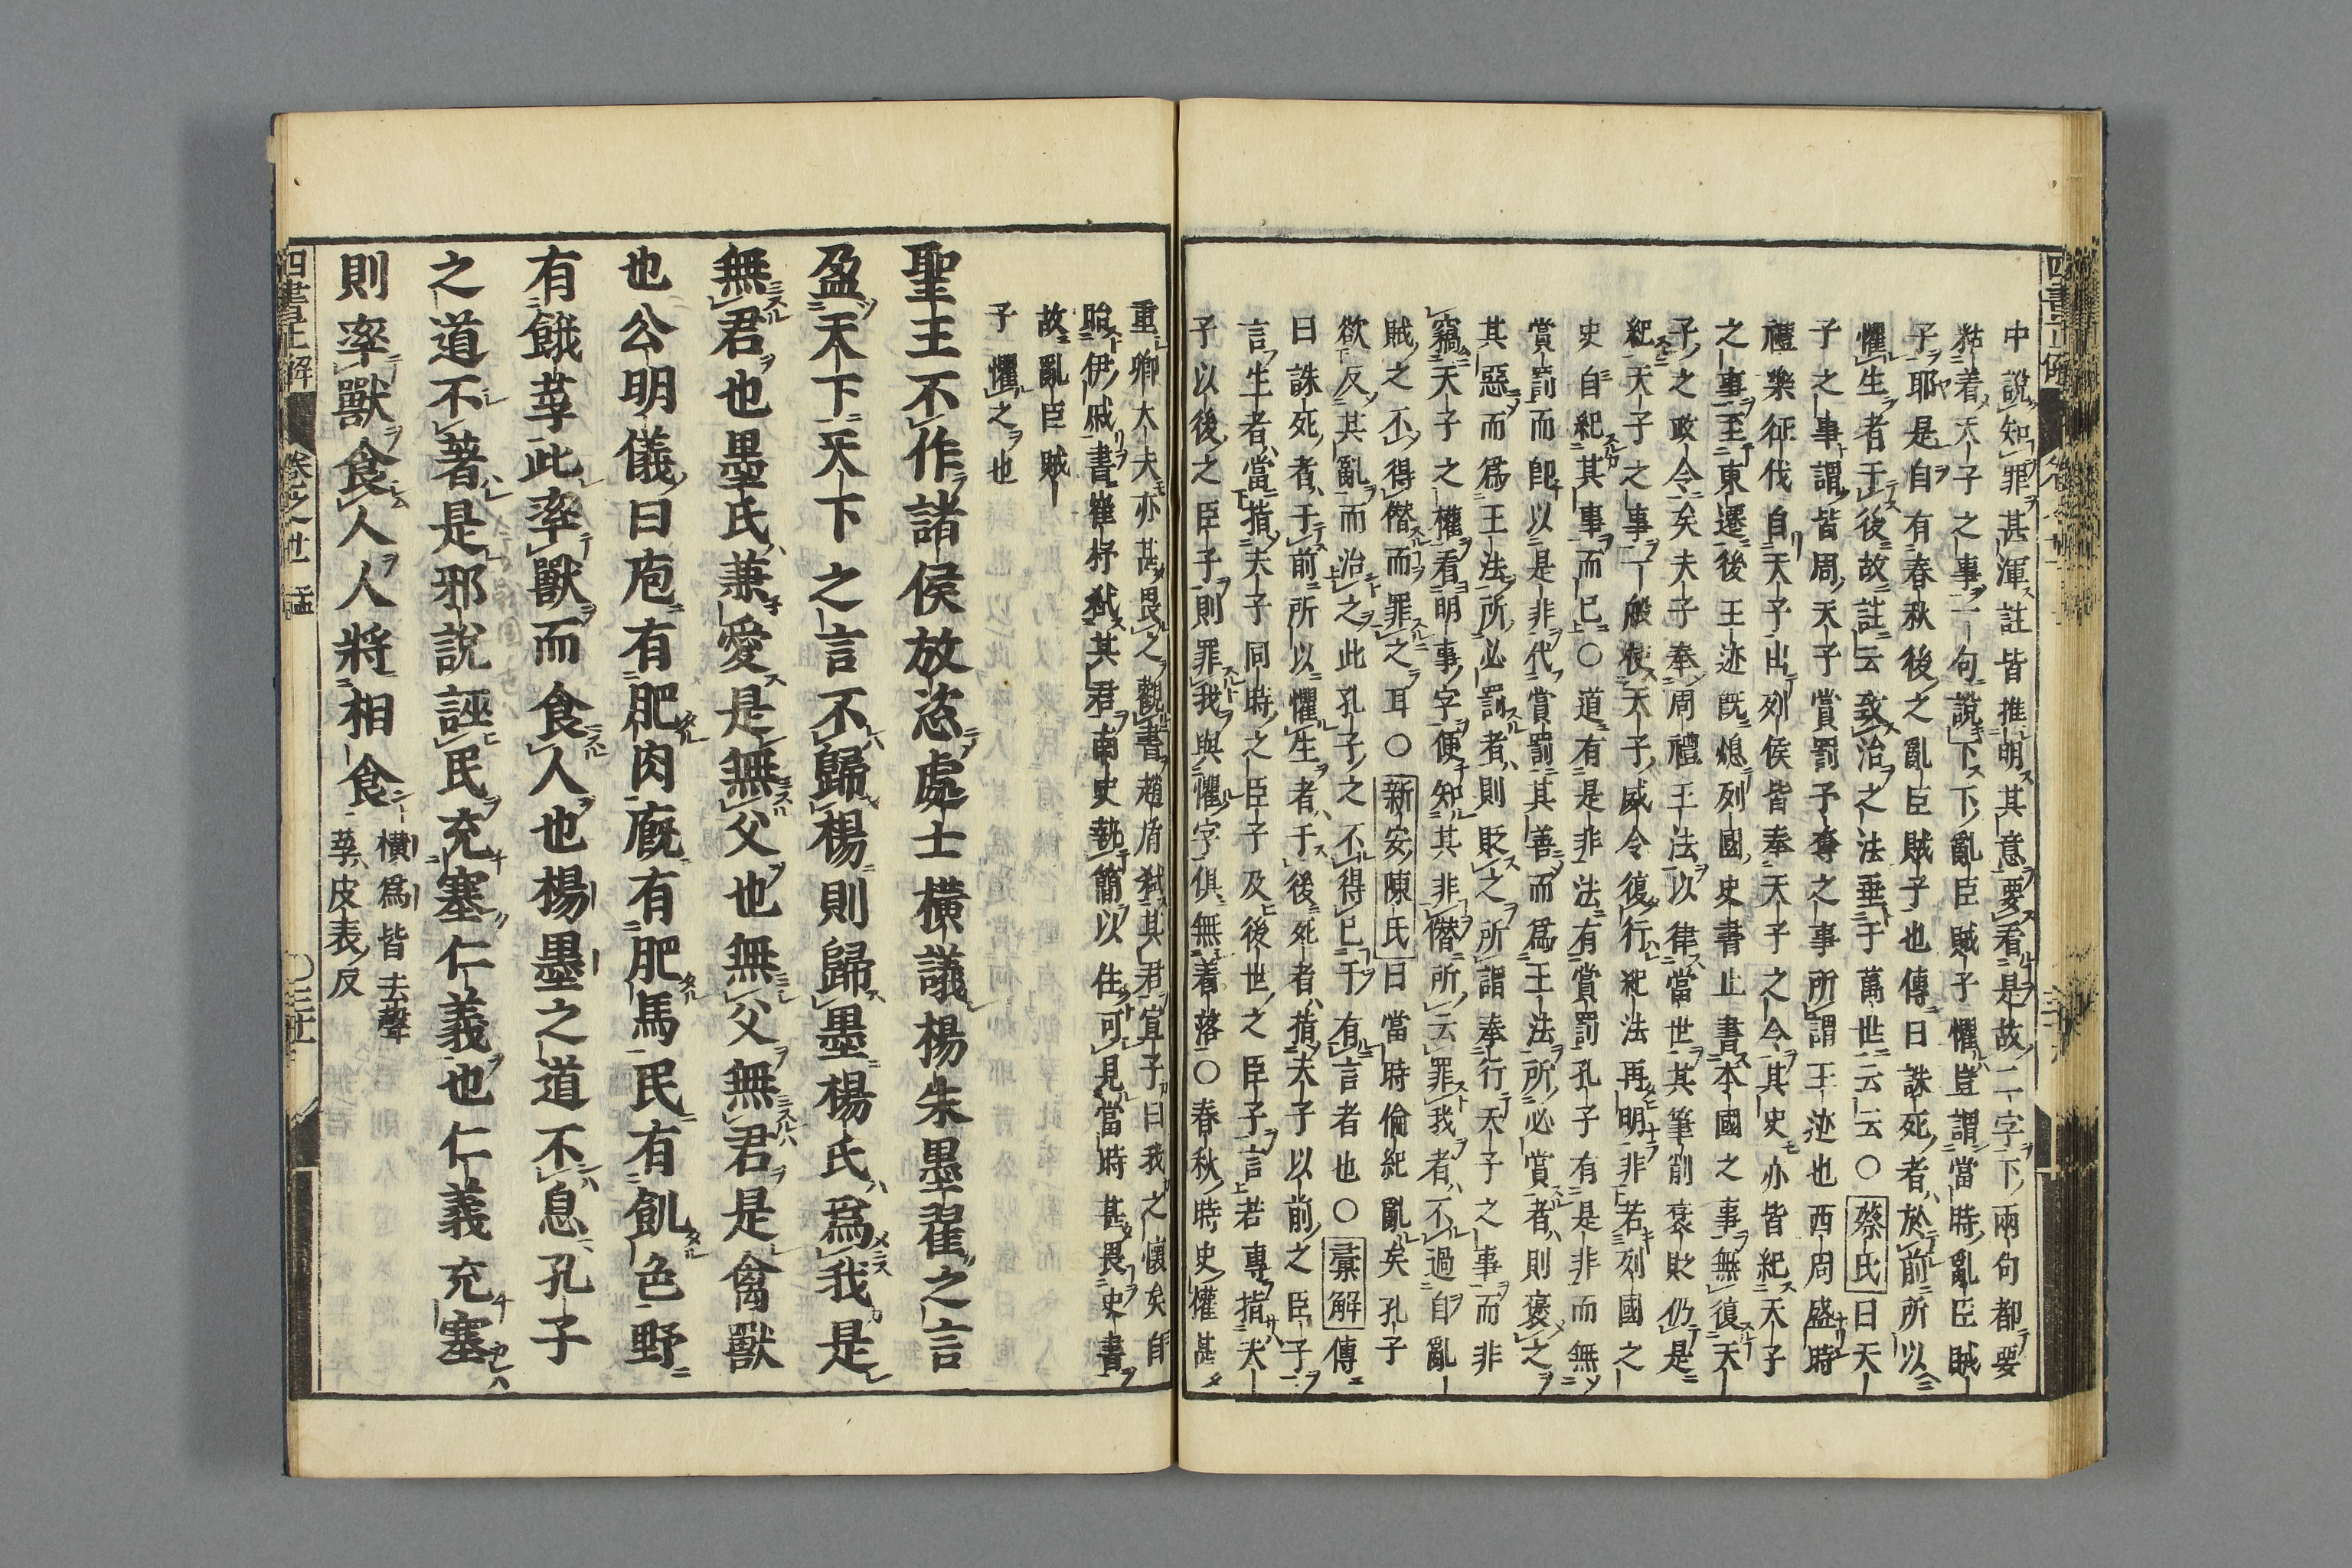 中說知罪甚渾註皆推明其意要看是故二字下兩句都要
粘着天子之事一句說下下亂臣賊子懼豈謂當時亂臣賊
子耶是自有春秋後之亂臣賊子也傳曰誅死者於前所以
懼生者于後故註云致治之法垂于萬世云云○蔡氏曰天
子之事謂皆周天子賞罰予奪之事所謂王迹也西周盛時
禮樂征伐自天子出列侯皆奉天子之令其史亦皆紀天子
之事至東遷後王迹既熄列國史書止書本國之事無復天
子之政令矣夫子奉周禮王法以律當世其筆削褒貶仍是
紀天子之事一般使天子威令復行紀法再明非若列國之
史自紀其事而已○道有是非法有賞罰孔子有是非而無
賞罰而卽以是非代賞罰其善而爲王法所必賞者則褒之
其惡而爲王法所必罰者則貶之所謂奉行天子之事而非
竊天子之權看明事字便知其非僭所云罪我者不過自亂
賊之不得僭而罪之耳○新安陳氏曰當時倫紀亂矣孔子
欲反其亂而治之此孔子之不得已于有言者也○彙解傳
曰誅死者于前所以懼生者于後死者指夫子以前之臣子
言生者當指夫子同時之臣子及後世之臣子言若專指夫
子以後之臣子則罪我與懼字俱無着落○春秋時史權甚
重卿大夫亦甚畏之觀書趙盾弑其君宣子曰我之懷矣自
貽伊戚書崔杼弑其君南史執簡以往可見當時甚畏史書
故亂臣賊
子懼之也
聖王不作諸侯放恣處士橫議楊朱墨翟之言
盈天下天下之言不歸楊則歸墨楊氏爲我是
無君也墨氏兼愛是無父也無父無君是禽獸
也公明儀曰庖有肥肉廐有肥馬民有飢色野
有餓莩此率獸而食人也楊墨之道不息孔子
之道不著是邪說誣民充塞仁義也仁義充塞
則率獸食人人將相食
橫爲皆去聲
莩皮表反
四書正解 卷之廿一 孟